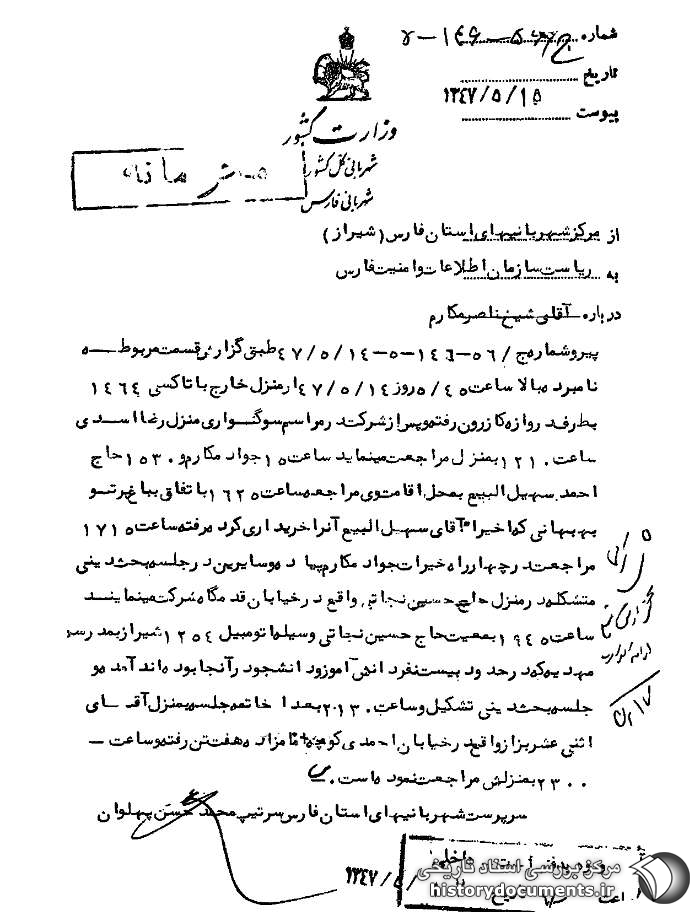 شماره
تاریخ ۱۳۴۷/۵/۱۵
پیوست
وزارت کشور
شهربانی کل کشور
شهربانی فارس
محرمانه
از مرکز شهربانیهای استان فارس (شیراز)
به ریاست سازمان اطلاعات و امنیت فارس
درباره آقای شیخ ناصر مکارم
پیرو شماره ج/۵۶-۱۴۶-۵-۴۷/۵/۱۴ طبق گزارش قسمت مربوطه
نامبرده بالا ساعت ۵/۴۵ روز ۴۷/۵/۱۴ از منزل خارج با تاکسی ۱۴۶۴
بطرف دروازه کازرون رفته و پس از شرکت در مراسم سوگواری منزل رضا اسدی
ساعت ۱۲۱۰ بمنزل مراجعت مینماید ساعت ۱۵ جواد مکارم و ۱۵۳۰ حاج
احمد سهیل البیع بمحل اقامت وی مراجعه ساعت ۱۶۲۵ باتفاق بباغ پرتو
بهبهانی که اخیراً آقای سهیل البیع آنرا خریداری کرده رفته ساعت ۱۷۱۵
مراجعت در چهارراه خیرات جواد مکارم پیاده و سایرین در جلسه بحث دینی
متشکله در منزل حاج حسین نجاتی واقع در خیابان قدمگاه شرکت مینمایند
ساعت ۱۹۴۵ بمعیت حاج حسین نجاتی وسیله اتومبیل ۱۲۵۴ شیراز بمدرسه
مهدیه که در حدود بیست نفر دانش آموز و دانشجو در آنجا بوده اند آمده و
جلسه بحث دینی تشکیل و ساعت ۲۱۳۰ بعد از خاتمه جلسه بمنزل آقای
اثنی عشر بزاز واقع در خیابان احمدی کوچه امامزاده هفت تن رفته و ساعت -
۲۳۰۰ بمنزلش مراجعت نموده است.
سرپرست شهربانیهای استان فارس سرتیپ محمد حسن پهلوان
۱۳۴۷/
مرکز بررسی اسناد تاریخی
historydocuments.ir